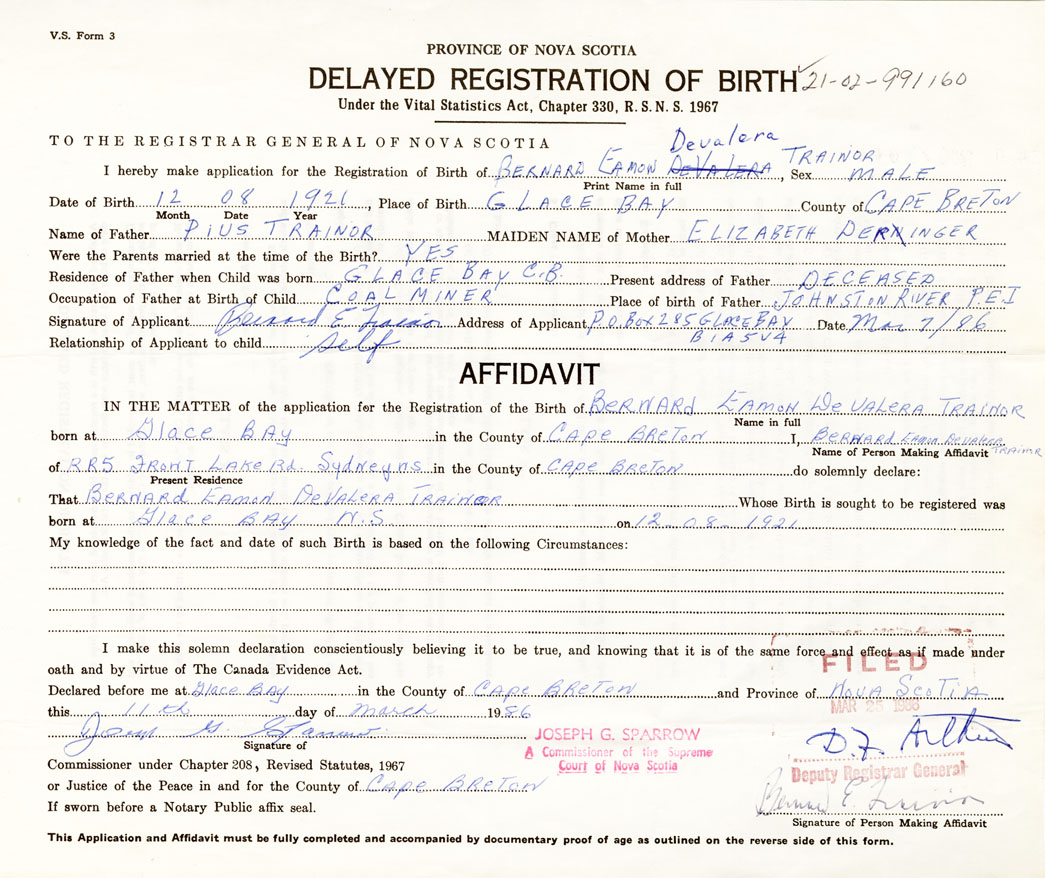 V.S. Form 3
PROVINCE OF NOVA SCOTIA
DELAYED REGISTRATION OF BIRTH 21-02-991160
Under the Vital Statistics Act, Chapter 330, R.S.N.S. 1967
TO THE REGISTRAR GENERAL OF NOVA SCOTIA
Devalera
I hereby make application for the Registration of Birth of BERNARD EAMON DEVALERA TRAINOR, Sex MALE
Print Name in full
Date of Birth 12 08 1921, Place of Birth GLACE BAY County of CAPE BRETON
Month Date Year
Name of Father PIUS TRAINOR MAIDEN NAME of Mother ELIZABETH DERNINGER
Were the Parents married at the time of the Birth? YES
Residence of Father when Child was born GLACE BAY C.B. Present address of Father DECEASED
Occupation of Father at Birth of Child COAL MINER Place of birth of Father JOHNSTON RIVER P.E.I
Signature of Applicant Bernard E. Trainor Address of Applicant P.O. BOX 285 GLACE BAY Date Mar 7/86
B1A5V4
Relationship of Applicant to child self
AFFIDAVIT
IN THE MATTER of the application for the Registration of the Birth of BERNARD EAMON DEVALERA TRAINOR
Name in full
born at Glace BAY in the County of CAPE BRETON I, BERNARD EAMON DEVALERA TRAINOR
Name of Person Making Affidavit
of RR5 FRONT LAKE Rd. Sydney ns in the County of CAPE BRETON do solemnly declare:
Present Residence
That BERNARD EAMON DEVALERA TRAINOR Whose Birth is sought to be registered was
born at Glace BAY N.S. on 12-08-1921
My knowledge of the fact and date of such Birth is based on the following Circumstances:
I make this solemn declaration conscientiously believing it to be true, and knowing that it is of the same force and effect as if made under
oath and by virtue of The Canada Evidence Act.
FILED
Declared before me at Glace BAY in the County of CAPE BRETON and Province of NOVA SCOTIA
MAR 25 1986
this 11th day of march 1986
JOSEPH G. SPARROW
A Commissioner of the Supreme
Court of Nova Scotia
Signature of
D.F. Arthur
Commissioner under Chapter 208, Revised Statutes, 1967
Deputy Registrar General
or Justice of the Peace in and for the County of CAPE BRETON
Bernard E. Trainor
If sworn before a Notary Public affix seal.
Signature of Person Making Affidavit
This Application and Affidavit must be fully completed and accompanied by documentary proof of age as outlined on the reverse side of this form.